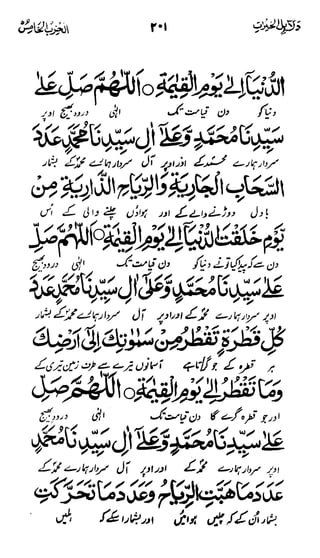 دلائل الخیرات ٢٠١ الحزب الخامس
الدُّنْيَا إِلَىٰ يَوْمِ الْقِيٰمَةِ ○ اَللّٰهُمَّ صَلِّ عَلٰى
دنیا کو دن قیامت تک الٰہی درود بھیج اوپر
سَيِّدِنَا مُحَمَّدٍ وَّعَلٰٓى اٰلِ سَيِّدِنَا مُحَمَّدٍ عَدَدَ
سردار ہمارے محمد کے اور اوپر آل سردار ہمارے محمد کے بشمار
السَّحَابِ الْجَارِيَةِ وَالرِّيَاحِ الذَّارِيَةِ مِنْ
بادل دوڑنے والے کے اور ہواؤں چلنے والی کے اُس
يَّوْمِ خَلَقْتَ الدُّنْيَا اِلٰى يَوْمِ الْقِيٰمَةِ ○ اَللّٰهُمَّ صَلِّ
دن سے کہ پیدا کیا تو نے دنیا کو دن قیامت تک الٰہی درود بھیج
عَلٰى سَيِّدِنَا مُحَمَّدٍ وَّعَلٰٓى اٰلِ سَيِّدِنَا مُحَمَّدٍ عَدَدَ
اوپر سردار ہمارے محمد کے اور اوپر آل سردار ہمارے محمد کے بشمار
كُلِّ قَطْرَةٍ تَقْطُرُ مِنْ سَمٰوٰتِكَ اِلٰٓى اَرْضِكَ
ہر قطرہ کے جو گرتا ہے آسمانوں تیرے سے طرف زمین تیری کے
وَمَا تَقْطُرُ اِلٰى يَوْمِ الْقِيٰمَةِ ○ اَللّٰهُمَّ صَلِّ
اور جو قطرہ گرے گا دن قیامت تک الٰہی درود بھیج
عَلٰى سَيِّدِنَا مُحَمَّدٍ وَّعَلٰٓى اٰلِ سَيِّدِنَا مُحَمَّدٍ
اوپر سردار ہمارے محمد کے اور اوپر آل سردار ہمارے محمد کے
عَدَدَ مَا هَبَّتِ الرِّيَاحُ وَعَدَدَ مَا تَحَرَّكَتِ
بشمار اُن کے کہ چلیں ہوائیں اور بشمار اسکے کہ ہلیں